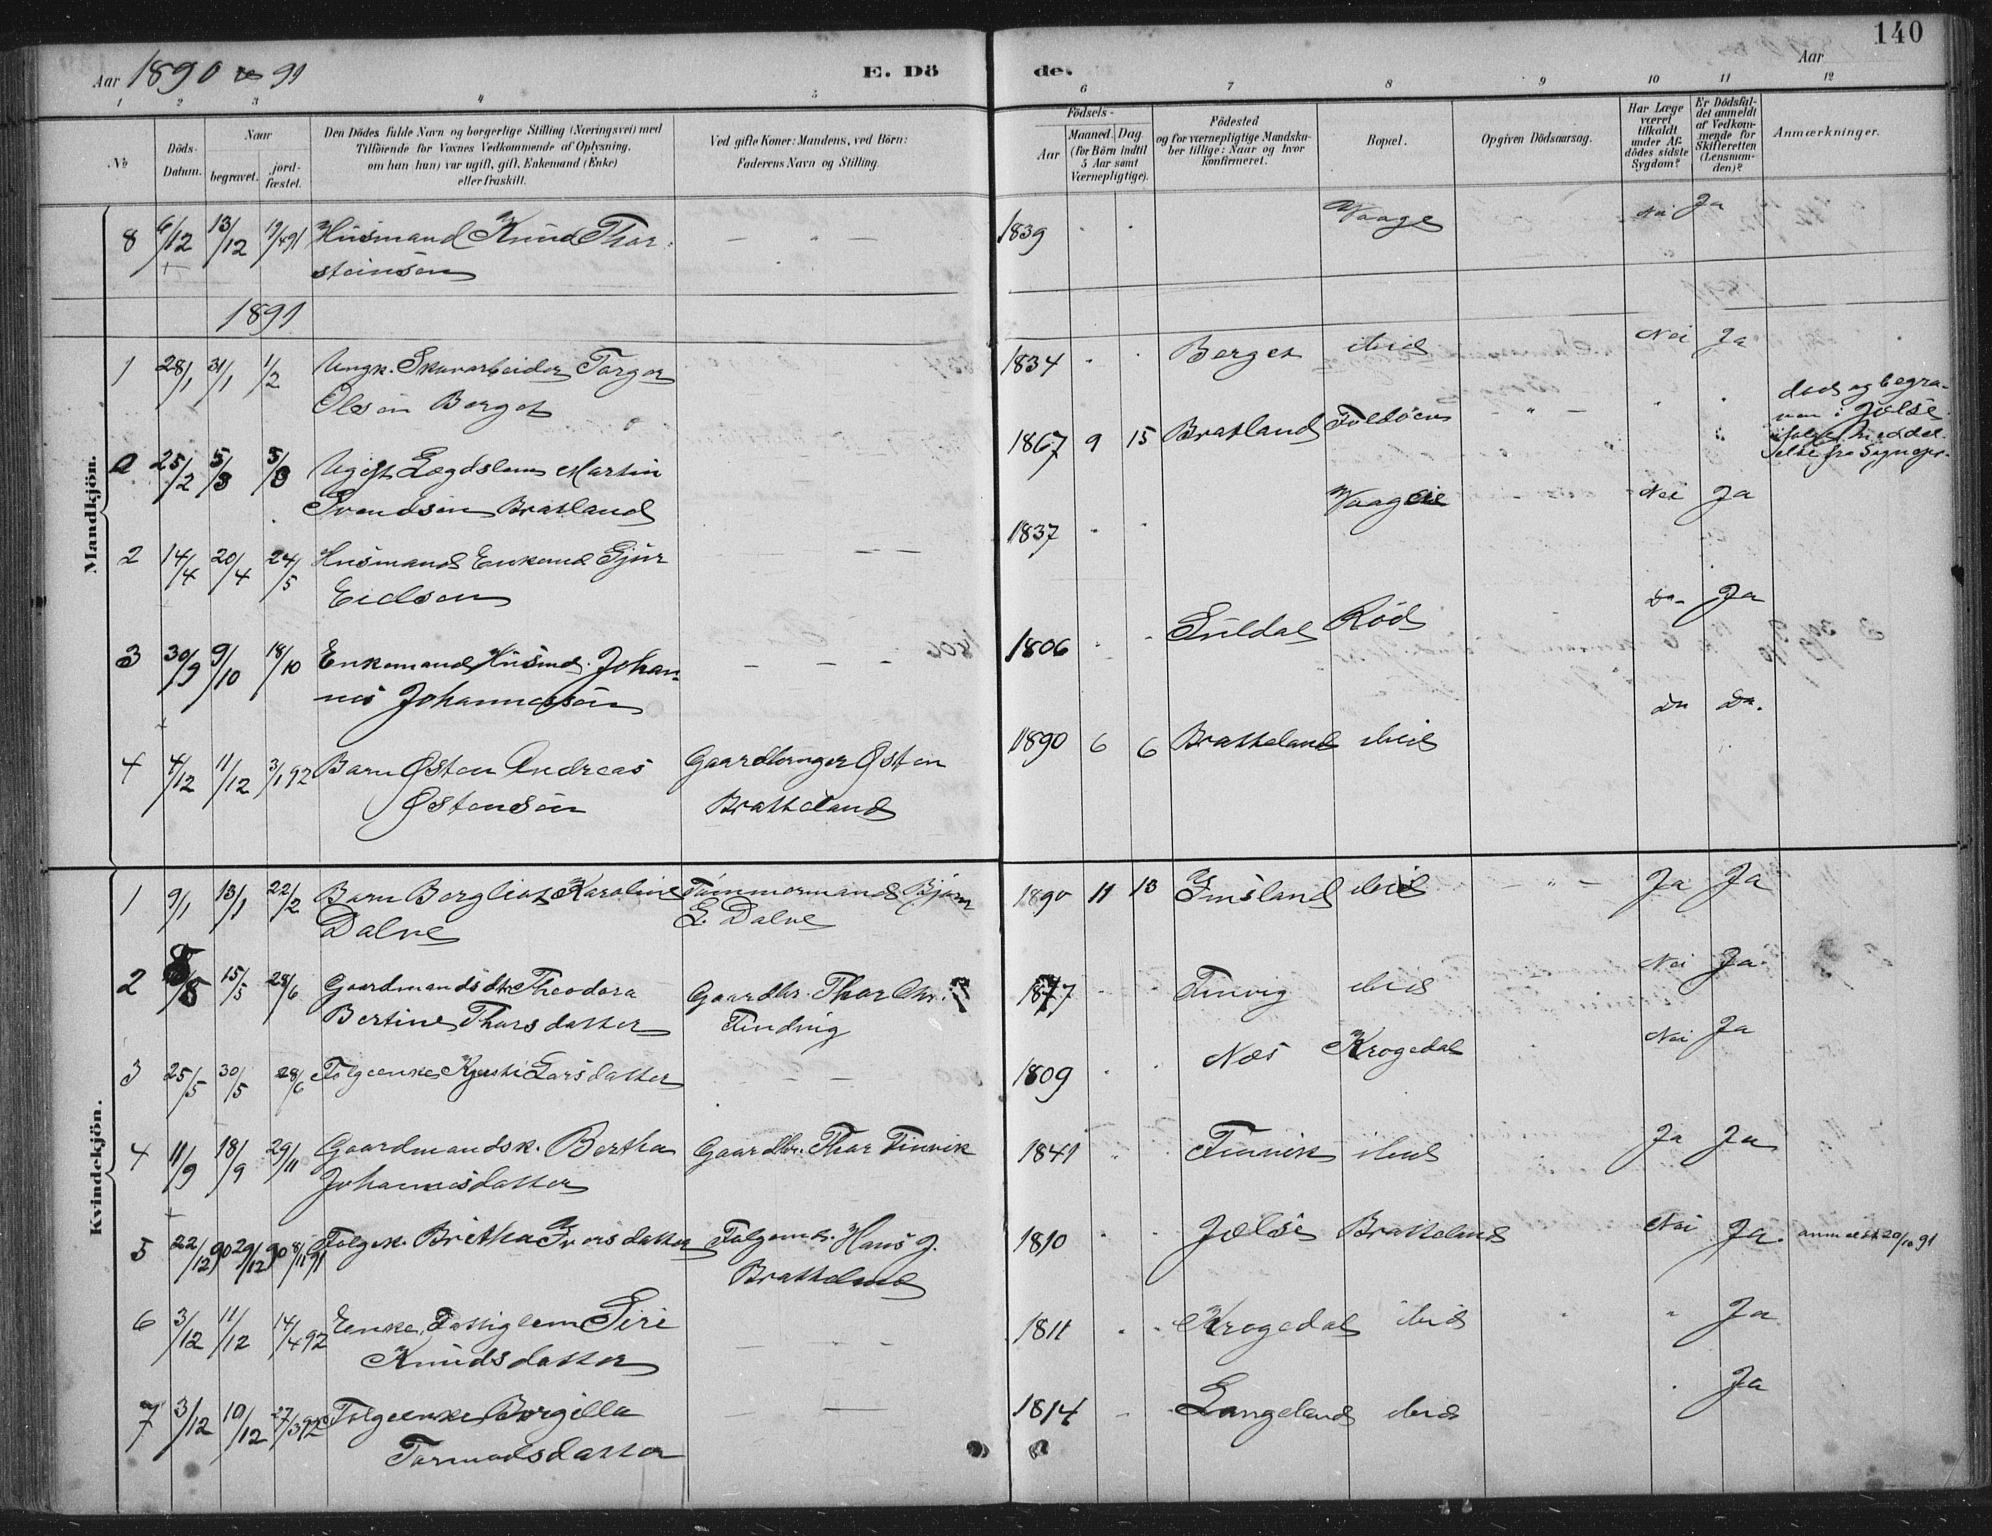 140
Aar 1890 og 91
E. Dö
de.
Aar
1 2 3 4 5
6 7 8 9 10 11 12
No
Döds-
Datum.
Naar
begravet.
jord-
fæstet.
Den Dödes fulde Navn og borgerlige Stilling (Næringsvei) med
Tilföiende for Voxnes Vedkommende af Oplysning,
om han (hun) var ugift, gift, Enkemand (Enke)
eller fraskilt.
Ved gifte Koner: Mandens, ved Börn:
Faderens Navn og Stilling.
Födsels-
Aar
Maaned. Dag.
(for Börn indtil
5 Aar samt
Værnepligtige).
Födested
og for værnepligtige Mandska-
ber tillige: Naar og hvor
konfirmeret.
Bopæl.
Opgiven Dödsaarsag.
Har Læge
været
tilkaldt
under Af-
dödes sidste
Sygdom?
Er Dödsfal-
det anmeldt
af Vedkom-
mende for
Skifteretten
(Lensman-
den)?
Anmærkninger.
Mandkjön.
8 6/12 13/12 19/4 91 Husmand Knud Thor- — " — 1839 " " Vaage Nei Ja
steinsön
1891
1 28/1 31/1 1/2 Ungk. Skovarbeider Torger 1834 " " Berget ibid Nei Ja
Olesen Berget
2 25/2 5/3 5/3 Ugift Lægdslem Martin 1867 9 15 Bratland Foldöen — " — " " död og begra-
ven i Jelse
ifølge Meddel-
else fra Sognepr.
Svendsen Bratland
2 14/4 20/4 24/5 Husmand Enkemd Gjør 1837 " " Vaage Nei Ja
Eidsen
3 30/9 9/10 18/10 Enkemand Husmd. Johan- — — — 1806 " " Suldal Röd Do- Ja
nes Johannessön
4 4/12 11/12 3/1 92 Barn Østen Andreas Gaardbruger Østen 1890 6 6 Bratteland ibid Do Do.
Østensön Bratteland
Kvindekjön.
1 9/1 13/1 22/2 Barn Bergliot Karoline Tømmermand Bjørn 1890 11 13 Finsland ibid — " — Ja Ja
Dalve L. Dalve
2 8/5 15/5 28/6 Gaardmandsdtr Theodora Gaardbr. Thor Chr. 1877 " " Finvig ibid Nei Ja
Bertine Thorsdatter Findvig
3 25/5 30/5 28/6 Folgeenke Kjersti Larsdatter — — 1809 " " Nes Krogedal Nei Ja
4 11/9 18/9 29/11 Gaardmandsk. Bertha Gaardbr. Thor Finvik 1841 " " Finvik ibid Ja Ja
Johannesdatter
5 22/12 90 29/12 90 8/11 91 Folgek. Britha Iversdatter Folgemd. Hans J. 1810 " " Jelse Bratteland Nei Ja anmeldt 20/10 91
Bratteland
6 3/12 11/12 14/4 92 Enke, Fattiglem Siri — " — 1811 " " Krogedal ibid " Ja
Knudsdatter
7 3/12 10/12 27/3 92 Folgeenke Borgilla — — 1814 " Langeland ibid " Ja
Tormodsdatter